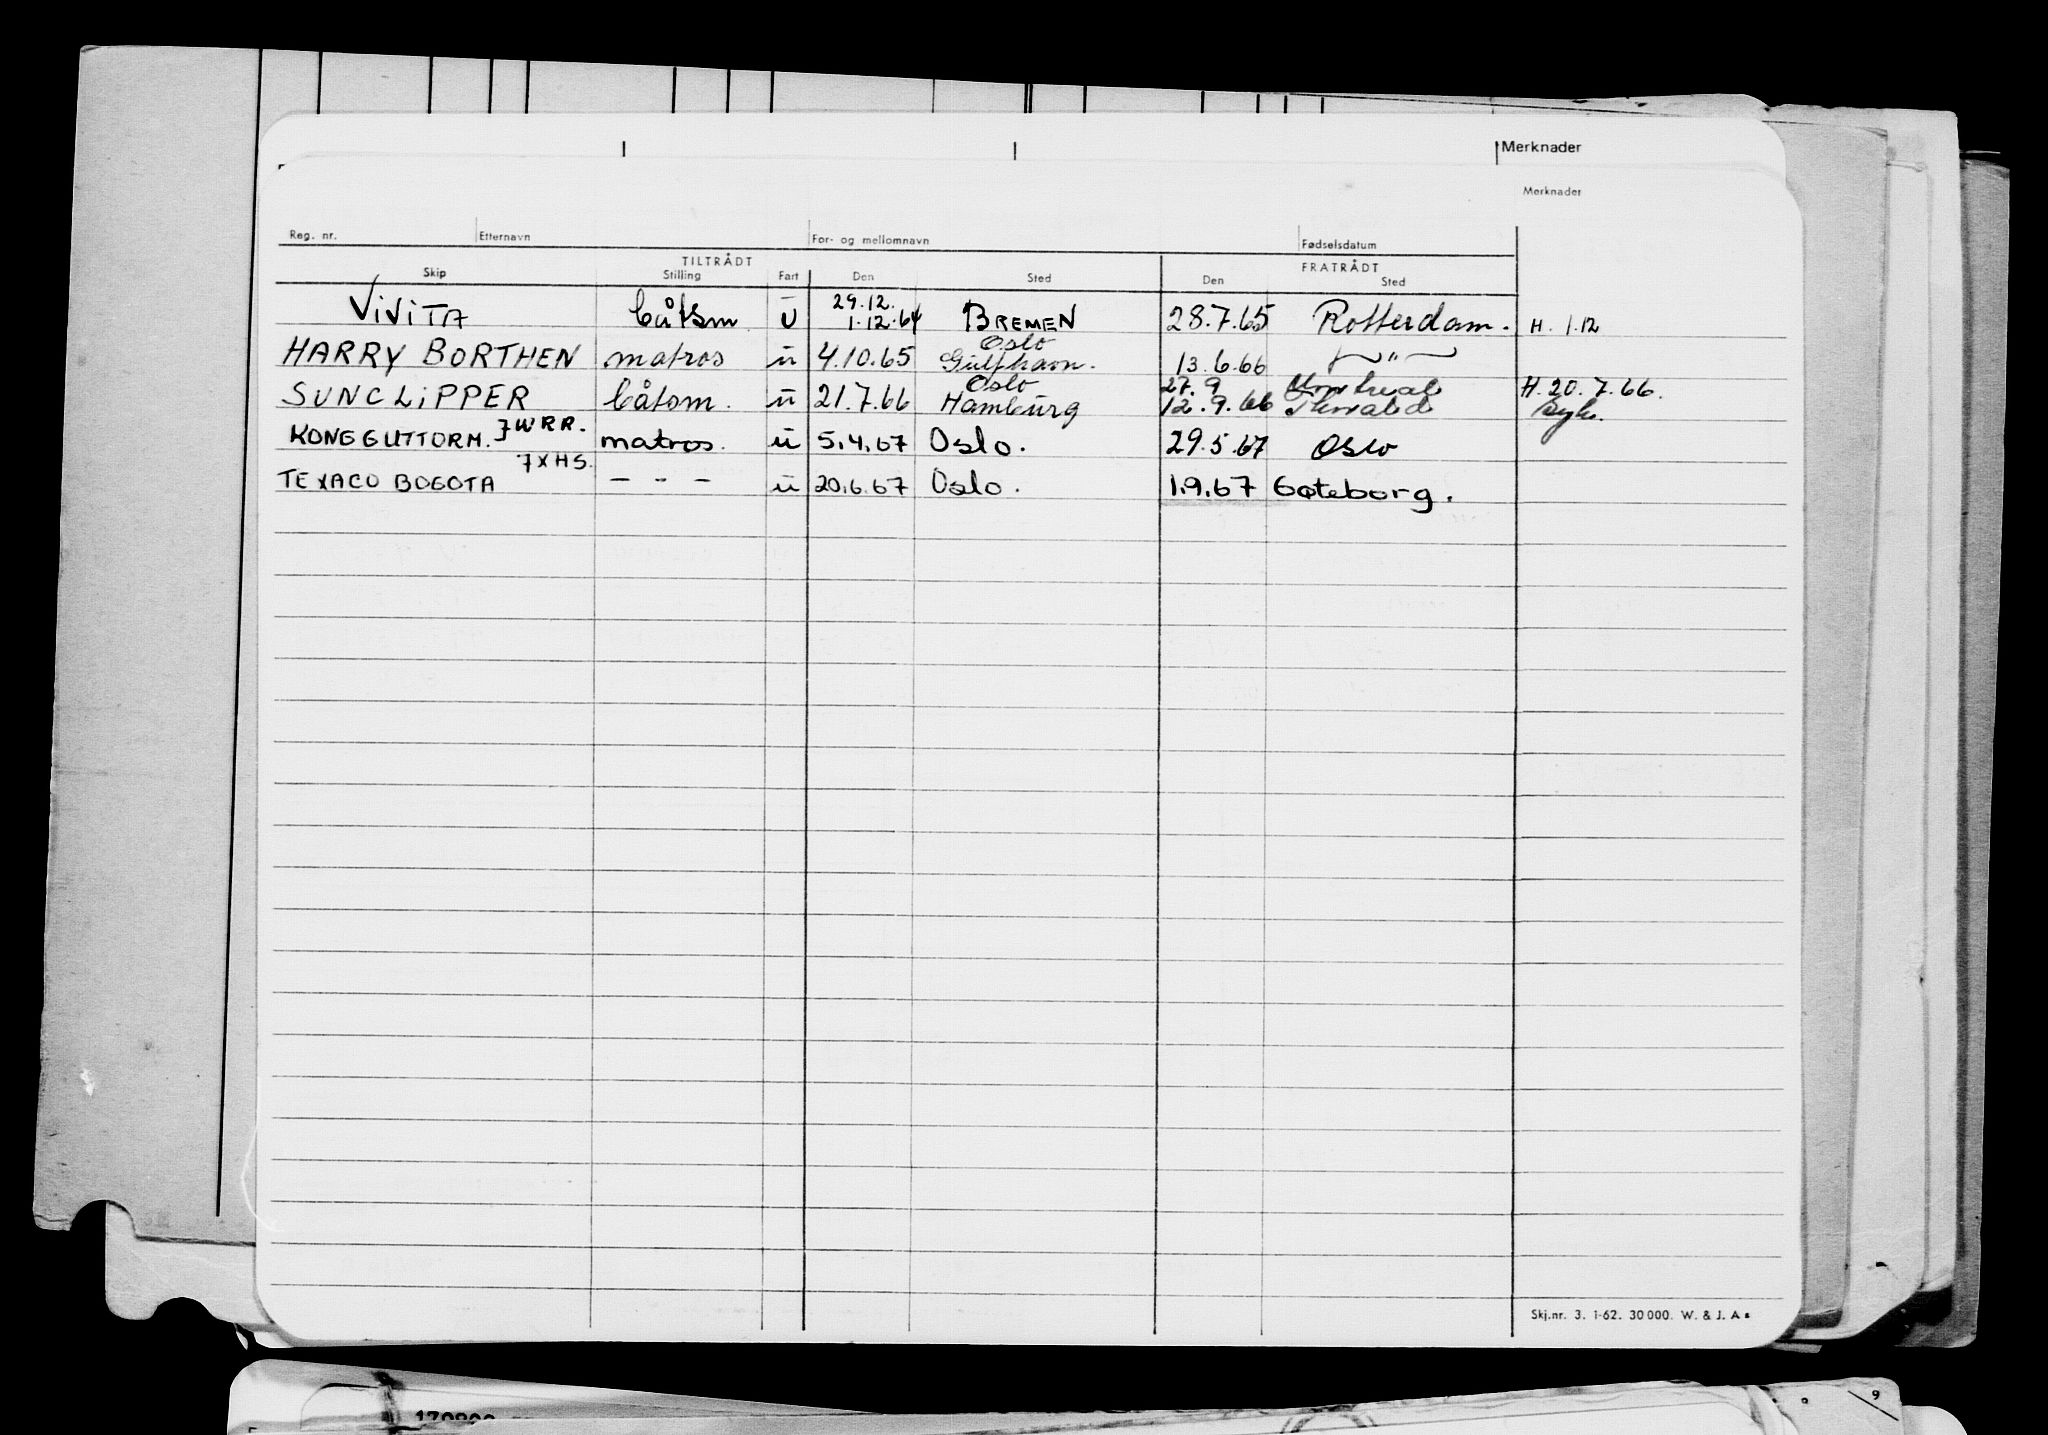 Merknader
Merknader
Reg. nr. Etternavn For- og mellomnavn Fødselsdatum
TILTRÅDT FRATRÅDT
Skip Stilling Fart Den Sted Den Sted
29.12.
ViViTA båtsm u 1.12.64 BREMEN 28.7.65 Rotterdam. H. 1.12
Oslo
HARRY BORTHEN matros u 4.10.65 Gulfhavn. 13.6.66 — " —
Oslo 27.9 Montreal H. 20.7.66.
SUNCLiPPER båtsm. u 21.7.66 Hamburg 12.9.66 syk.
7WRR.
KONG GUTTORM. matros. u 5.4.67 Oslo. 29.5.67 Oslo
7XHS.
TEXACO BOGOTA — - — u 20.6.67 Oslo. 1.9.67 Gøteborg.
Skj.nr. 3. 1-62. 30 000. W. & J. A s
9